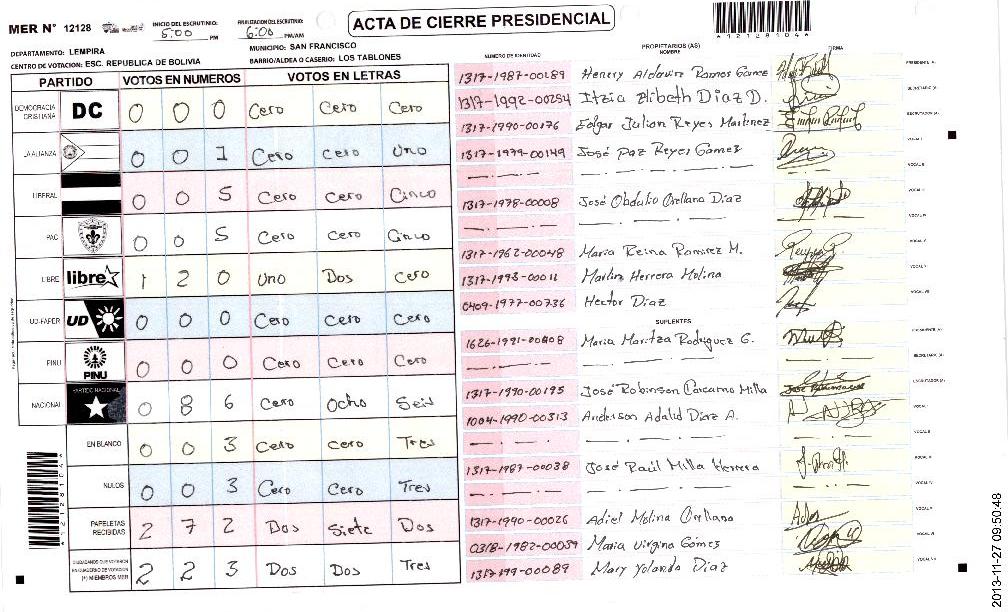 MER N° 12128
INICIO DEL ESCRUTINIO: 5:00 PM
FINALIZACION DEL ESCRUTINIO: 6:00 PM/AM
ACTA DE CIERRE PRESIDENCIAL
A12128104A
DEPARTAMENTO: LEMPIRA
MUNICIPIO: SAN FRANCISCO
CENTRO DE VOTACION: ESC. REPUBLICA DE BOLIVIA
BARRIO/ALDEA O CASERIO: LOS TABLONES
PARTIDO VOTOS EN NUMEROS VOTOS EN LETRAS
DEMOCRACIA CRISTIANA DC 0 0 0 Cero Cero Cero
LA ALIANZA 0 0 1 Cero Cero Uno
LIBERAL 0 0 5 Cero Cero Cinco
PAC 0 0 5 Cero Cero Cinco
LIBRE libre 1 2 0 Uno Dos Cero
UD-FAPER UD 0 0 0 Cero Cero Cero
PINU PINU 0 0 0 Cero Cero Cero
NACIONAL PARTIDO NACIONAL 0 8 6 Cero Ocho Seis
EN BLANCO 0 0 3 Cero Cero Tres
NULOS 0 0 3 Cero Cero Tres
PAPELETAS RECIBIDAS 2 7 2 Dos Siete Dos
CIUDADANOS QUE VOTARON EN CUADERNO DE VOTACION (+) MIEMBROS MER 2 2 3 Dos Dos Tres
PROPIETARIOS (AS)
NUMERO DE IDENTIDAD NOMBRE FIRMA
1317-1987-00189 Henrry Aldouin Ramos Gamez PRESIDENTE (A)
1317-1992-00254 Itzia Elibeth Diaz D. SECRETARIO (A)
1317-1990-00176 Edgar Julian Reyes Martinez ESCRUTADOR (A)
1317-1979-00149 José Paz Reyes Gamez VOCAL I
VOCAL II
1317-1978-00008 José Obdulio Orellana Diaz VOCAL III
VOCAL IV
1317-1962-00048 Maria Reina Ramirez M. VOCAL V
1317-1993-00011 Marlin Herrera Molina
0409-1977-00736 Hector Diaz VOCAL VII
SUPLENTES
1626-1991-00408 Maria Maritza Rodriguez G. PRESIDENTE (A)
SECRETARIO (A)
1317-1990-00195 José Robinson Carcamo Milla ESCRUTADOR (A)
1004-1990-00313 Anderson Adalid Diaz A. VOCAL I
VOCAL II
1317-1987-00038 José Raúl Milla Herrera VOCAL III
VOCAL IV
1317-1990-00026 Adiel Molina Orellana VOCAL V
0318-1982-00039 Maria Virgina Gómez VOCAL VI
1317-199-00089 Mary Yolanda Diaz VOCAL VII
A12128104A
2013-11-27 09:50:48